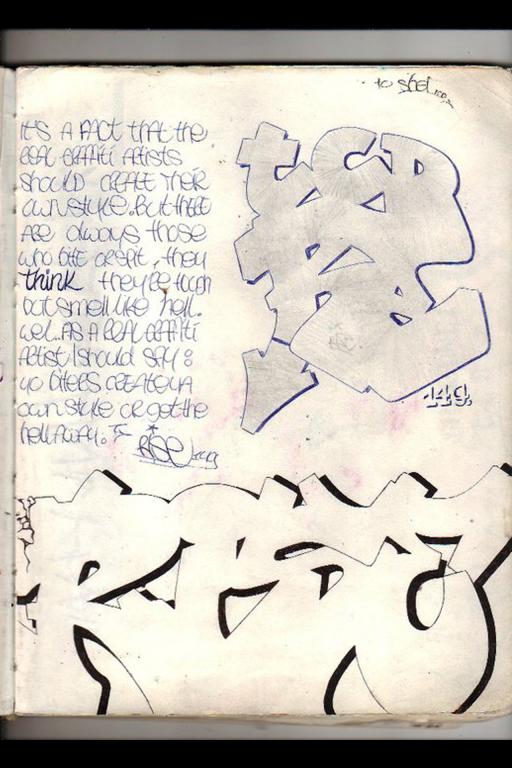 to shei
IT'S A FACT THAT the
REAL GRAFFITI ARTISTS
should CREATE THEIR
OWN STYLE. BUT THERE
ARE always those
who BITE OR SHIT, they
think they're tough
but smell like hell.
Well.. AS A REAL GRAFFITI
ARTIST I should SAY:
yo BITERS CREATE YA
OWN STYLE OR get the
hell AWAY.
RISE
149.